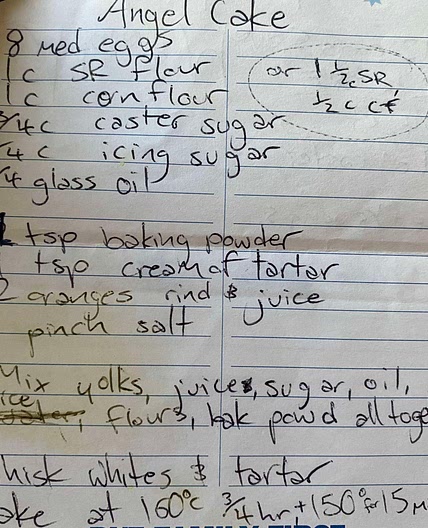 Angel Cake
8 med eggs
1 c SR flour
or 1 1/2 c SR,
1 c cornflour
1/2 c cf
3/4 c caster sugar
/4 c icing sugar
/4 glass oil
1 tsp baking powder
1 tsp cream of tartar
2 oranges rind & juice
pinch salt
Mix yolks, juices, sugar, oil,
flours, bak powd all toge
hisk whites & tartar
ake at 160°c 3/4 hr + 150° for 15 m